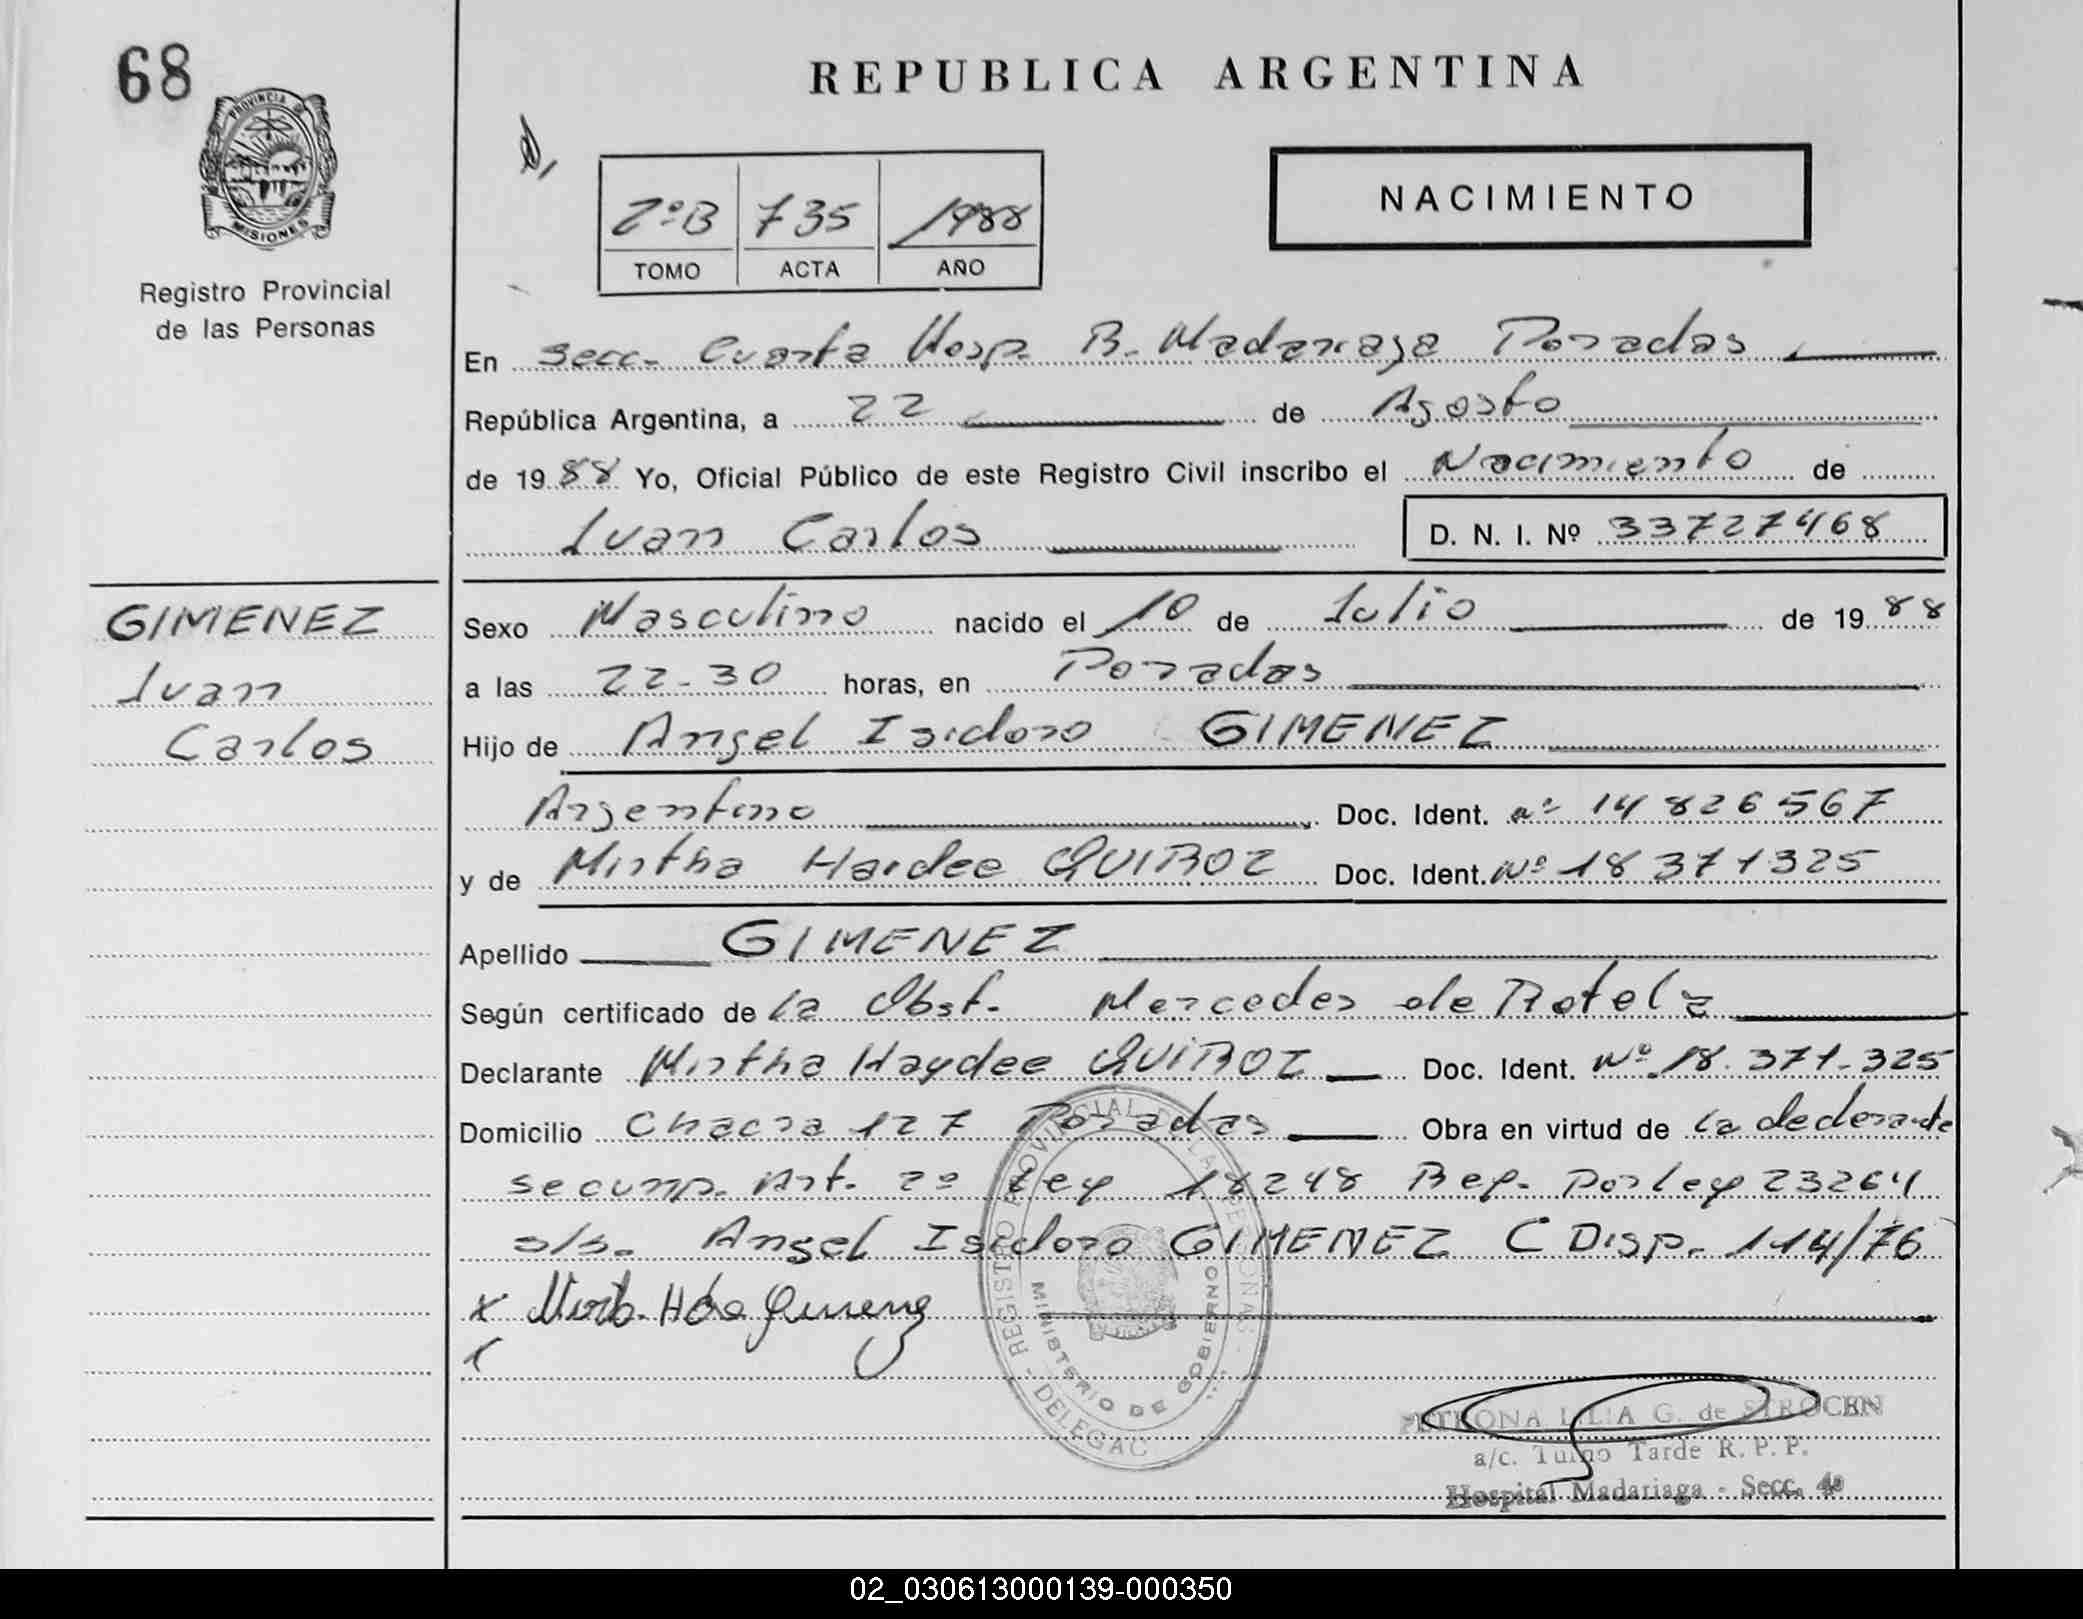 68
PROVINCIA DE
MISIONES
Registro Provincial
de las Personas
REPUBLICA ARGENTINA
2ºB 735 1988
TOMO ACTA AÑO
NACIMIENTO
En Secc. Cuarta Hosp. R. Madariaga Posadas
República Argentina, a 22 de Agosto
de 1988 Yo, Oficial Público de este Registro Civil inscribo el Nacimiento de
Ivan Carlos
D. N. I. Nº 33727468
GIMENEZ
Ivan
Carlos
Sexo Masculino nacido el 10 de Julio de 1988
a las 22-30 horas, en Posadas
Hijo de Angel Isidoro GIMENEZ
Argentino Doc. Ident. nº 14826567
y de Mirtha Haidee QUIROZ Doc. Ident. Nº 18371325
Apellido GIMENEZ
Según certificado de la Obst. Mercedes de Rotela
Declarante Mirtha Haydee QUIROZ Doc. Ident. Nº 18.371-325
Domicilio Chacra 127 Posadas Obra en virtud de la declarante
se cump. Art. 2º Ley 18248 Ref. Por ley 23264
s/s. Angel Isidoro GIMENEZ C Disp. 114/76
x
x
REGISTRO PROVINCIAL DE LAS PERSONAS - DELEGAC
MINISTERIO DE GOBIERNO
PETRONA LILIA G. de STROCEN
a/c. Turno Tarde R. P. P.
Hospital Madariaga - Secc. 4ª
02_030613000139-000350